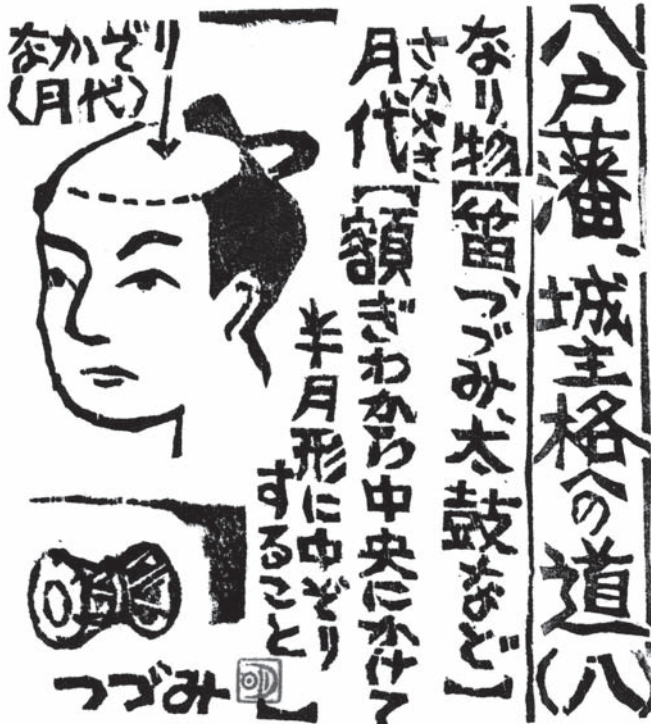 八戸藩、城主格への道(八)
なり物【笛、つづみ、太鼓など】
さかやき
月代【額ぎわから中央にかけて
半月形に中ぞり
すること】
なかぞり
(月代)
つづみ